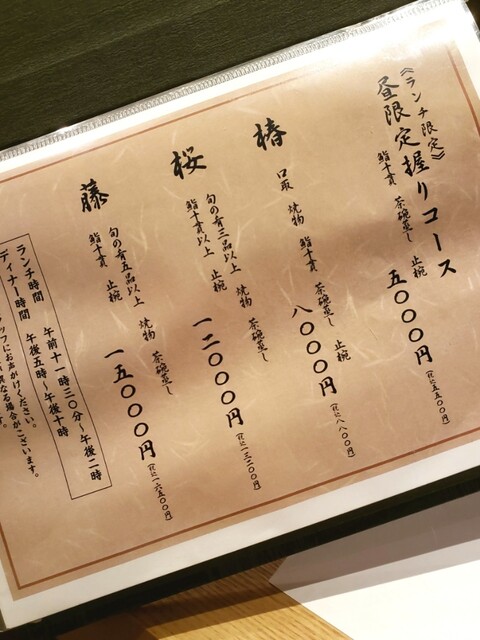 《ランチ限定》
昼限定握りコース
鮨十貫 茶碗蒸し 止椀
五〇〇〇円(税込五五〇〇円)
椿
口取 焼物 鮨十貫 茶碗蒸し 止椀
八〇〇〇円(税込八八〇〇円)
桜
旬の肴三品以上 焼物 茶碗蒸し
鮨十貫以上 止椀
一二〇〇〇円(税込一三二〇〇円)
藤
旬の肴五品以上 焼物 茶碗蒸し
鮨十貫 止椀
一五〇〇〇円(税込一六五〇〇円)
ランチ時間 午前十一時三〇分~午後二時
ディナー時間 午後五時~午後十時
タッフにお声がけください。
異なる場合がございます。